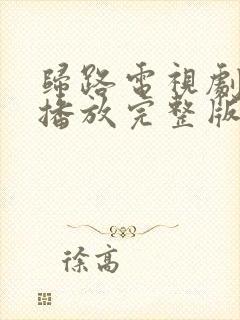 歸路電視劇
播放完整版
徐高